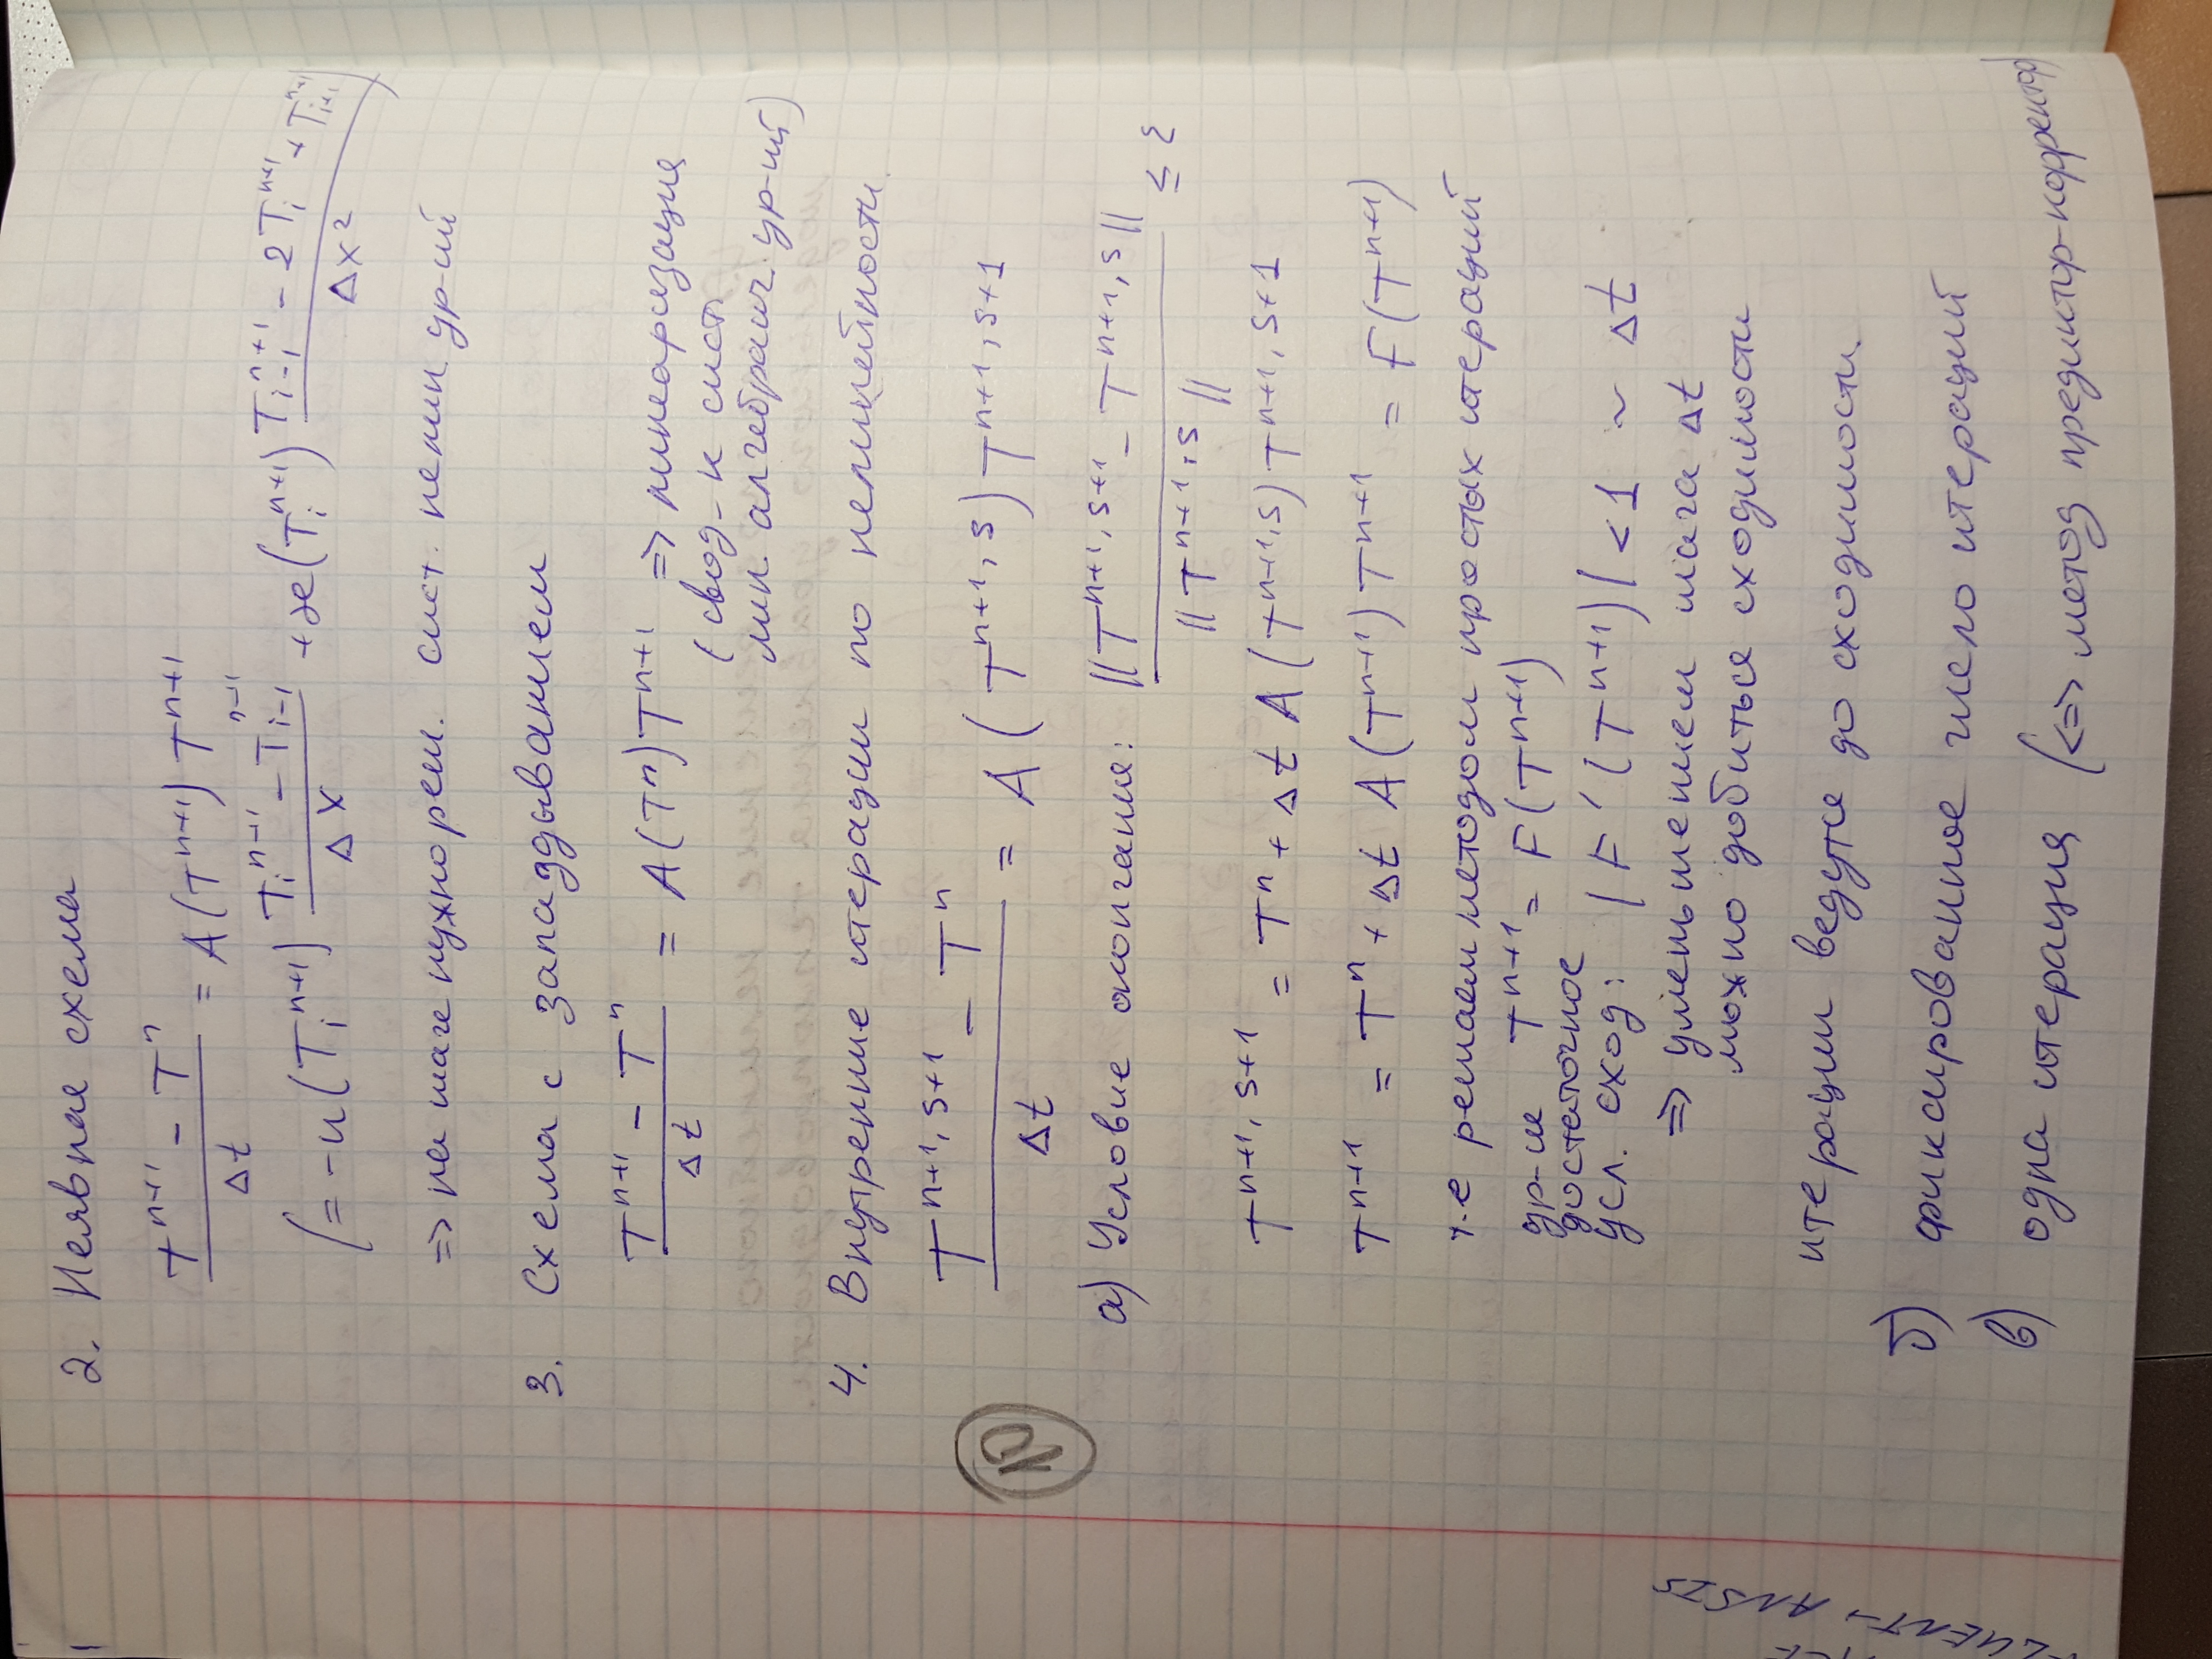 2. Неявная схема
(T^{n+1} - T^n) / Δt = A(T^{n+1}) T^{n+1}
(= -u(T_i^{n+1}) (T_i^{n+1} - T_{i-1}^{n+1}) / Δx + æ(T_i^{n+1}) (T_{i-1}^{n+1} - 2T_i^{n+1} + T_{i+1}^{n+1}) / Δx²)
=> на шаге нужно реш. сист. нелин. ур-ий
3. Схема с запаздыванием
(T^{n+1} - T^n) / Δt = A(T^n) T^{n+1} => линеаризация
(свод- к сист.
лин. алгебраич. ур-ий)
4. Внутренние итерации по нелинейности.
(T^{n+1,s+1} - T^n) / Δt = A(T^{n+1,s}) T^{n+1,s+1}
10
а) Условие окончания: ||T^{n+1,s+1} - T^{n+1,s}|| / ||T^{n+1,s}|| ≤ ε
T^{n+1,s+1} = T^n + Δt A(T^{n+1,s}) T^{n+1,s+1}
T^{n+1} = T^n + Δt A(T^{n+1}) T^{n+1} = F(T^{n+1})
т.е решаем методом простых итераций
ур-ие T^{n+1} = F(T^{n+1})
достаточное
усл. сход: |F'(T^{n+1})| < 1 ~ Δt
=> уменьшением шага Δt
можно добиться сходимости
итерации ведутся до сходимости.
б) фиксированное число итераций
в) одна итерация (<=> метод предиктор-корректор)
→ ANSIS